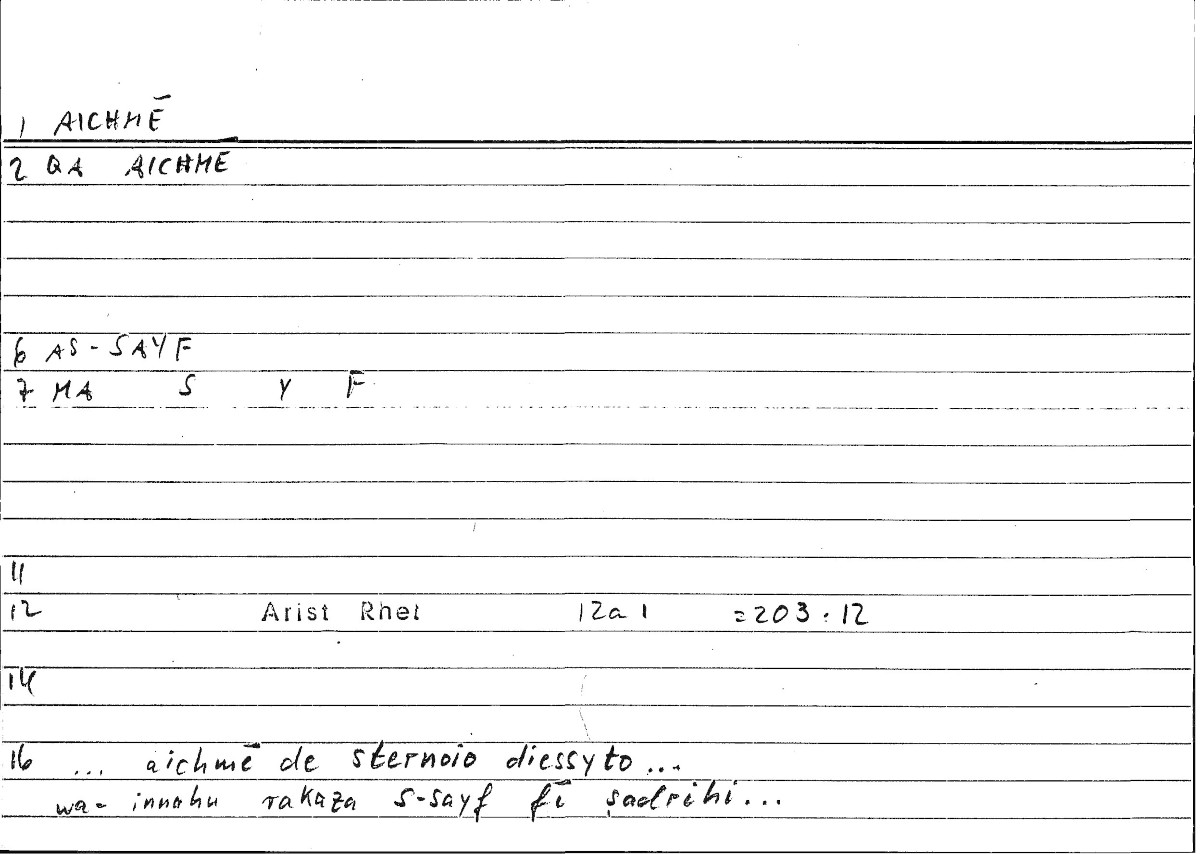 1 AICHMĒ
2 QA AICHMĒ
6 AS-SAYF
7 MA S Y F
11
12 Arist Rhet 12a1 =203.12
14
16 ... aichmē de sternoio diessyto...
wa-innahu rakaza s-sayf fī ṣadrihi...